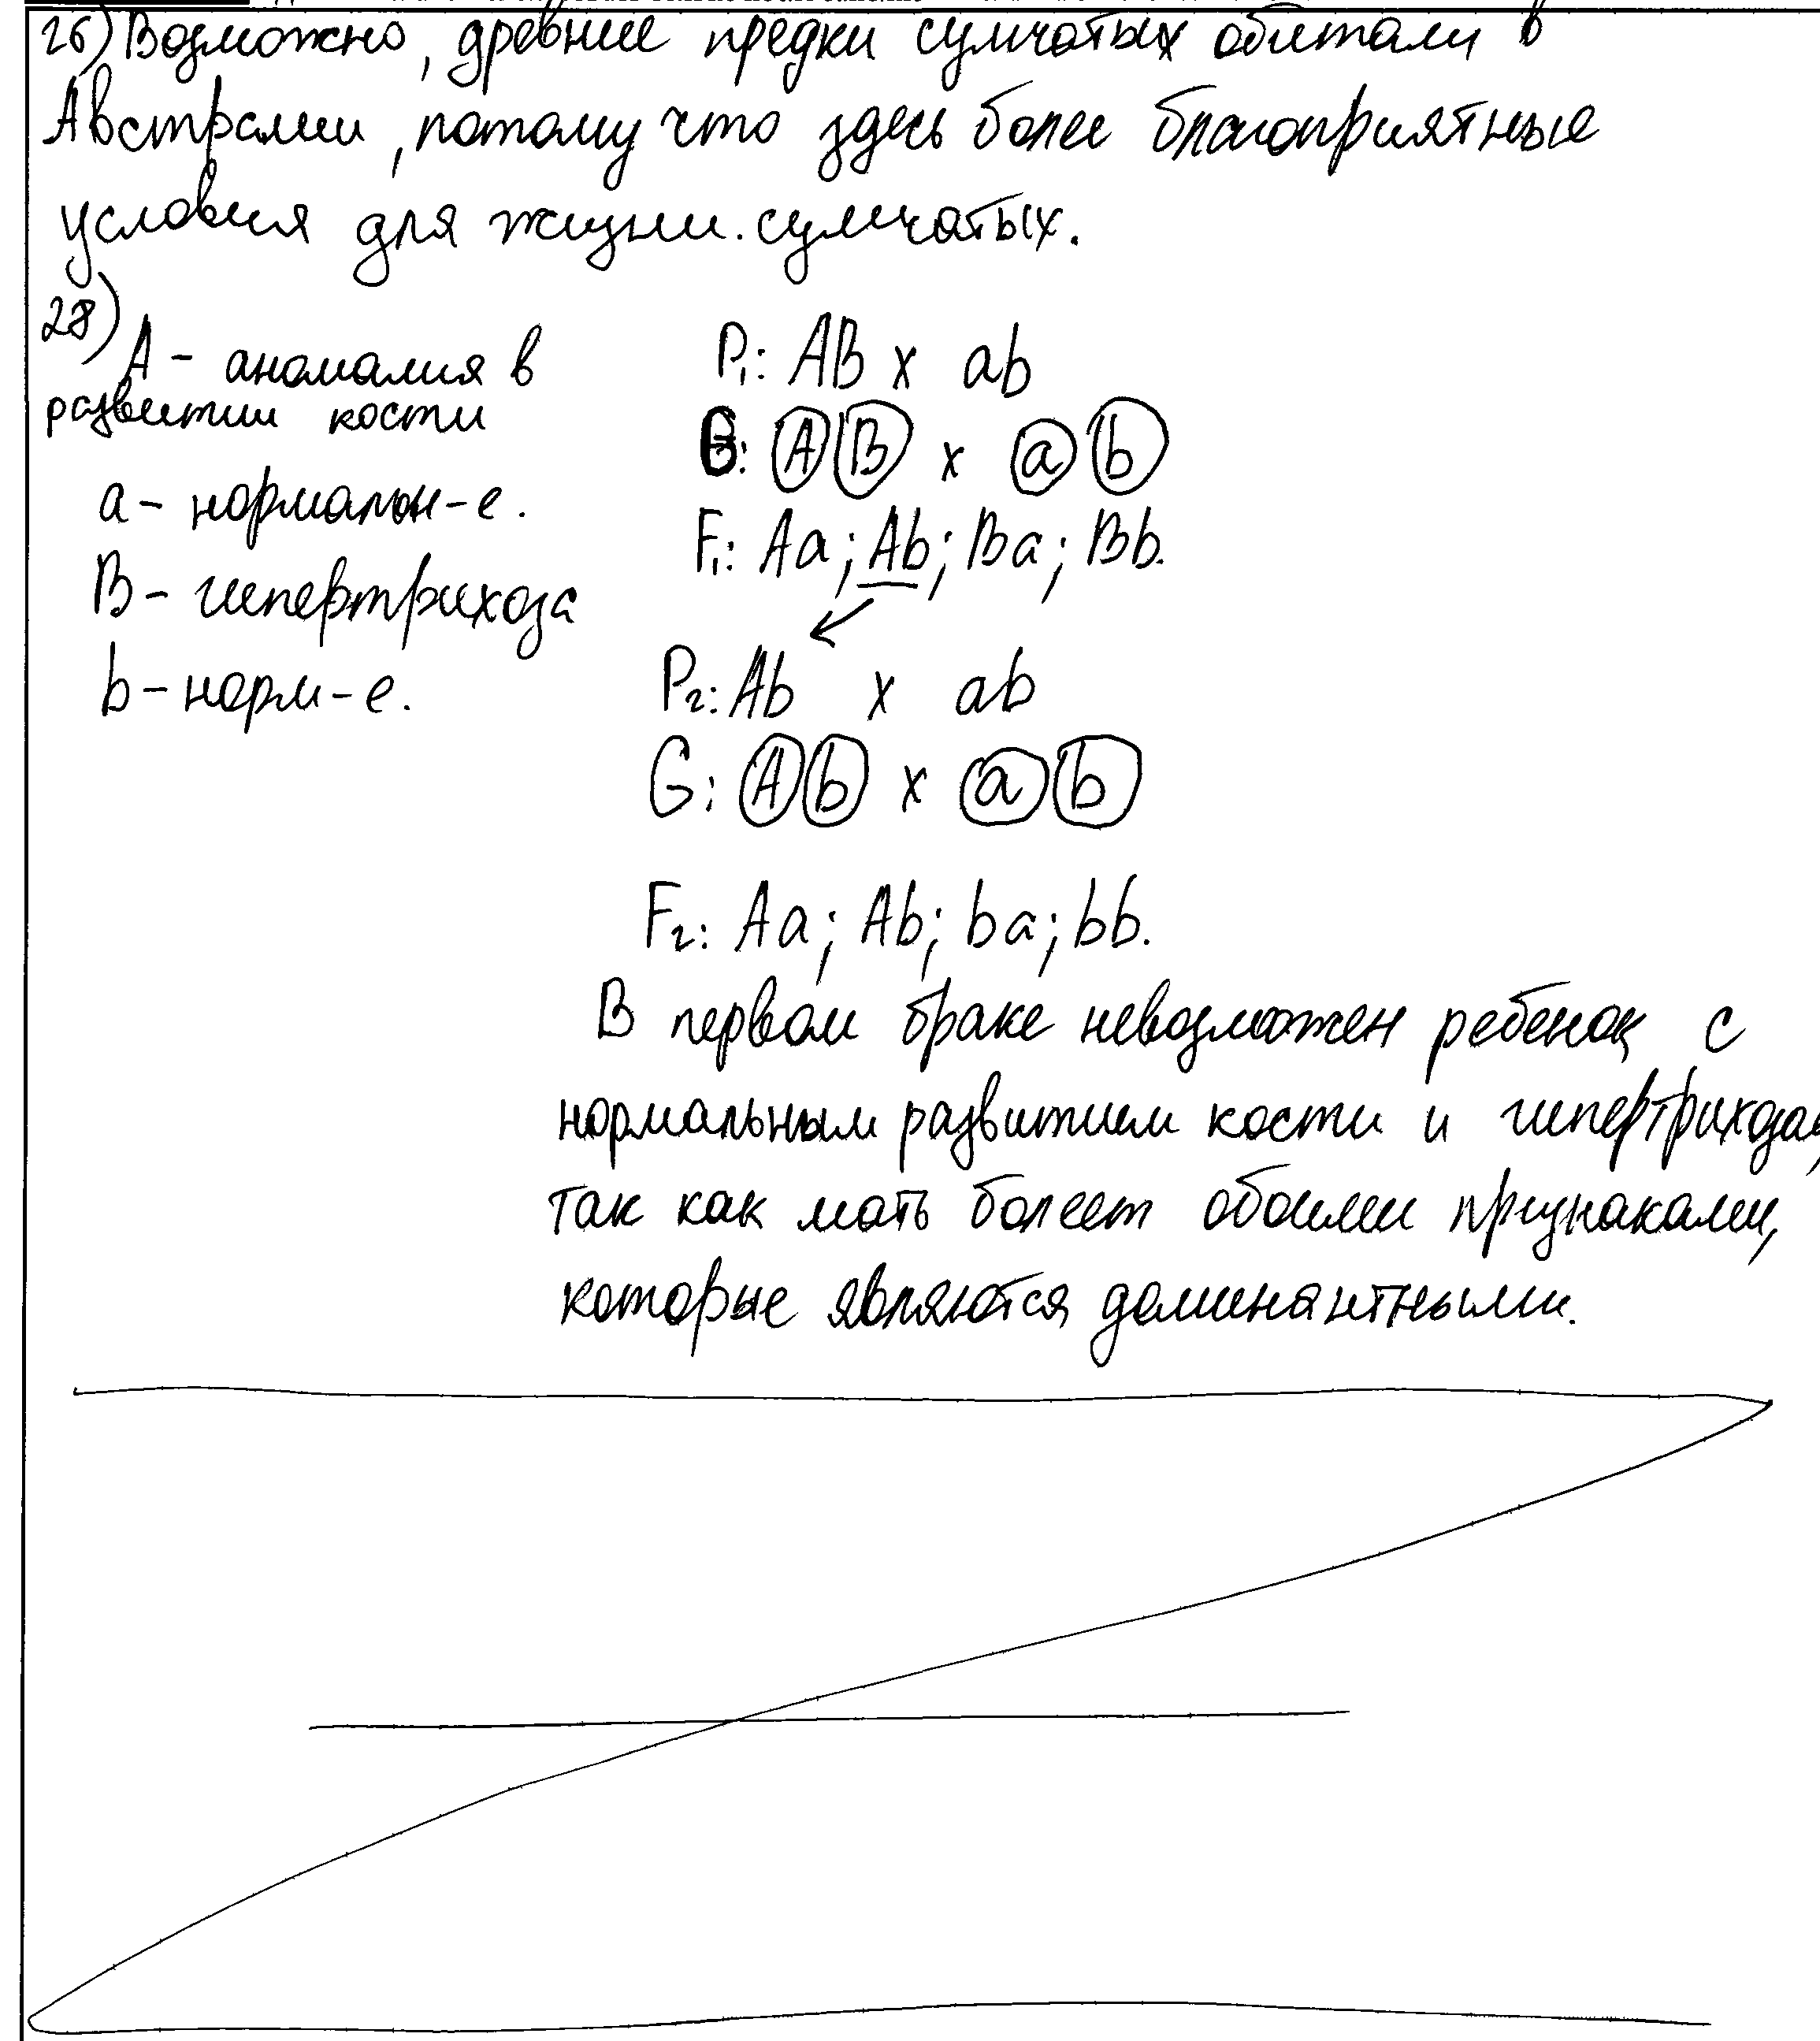 26) Возможно, древние предки сумчатых обитали в
Австралии, потому что здесь более благоприятные
условия для жизни. сумчатых.
28)
А - аномалия в
развитии кости
а - нормальн-е.
В - гипертрихоза
b - норм-е.
P₁: AB x ab
G: A B x a b
F₁: Aa; Ab; Ba; Bb.
P₂: Ab x ab
G: A b x a b
F₂: Aa; Ab; ba; bb.
В первом браке невозможен ребенок с
нормальным развитием кости и
так как мать болеет обоими признаками,
которые являются доминантными.